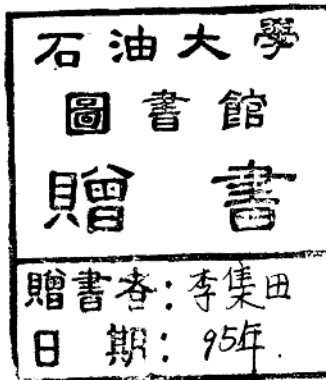 石油大學
圖書館
贈書
贈書者：李集田
日期：95年.